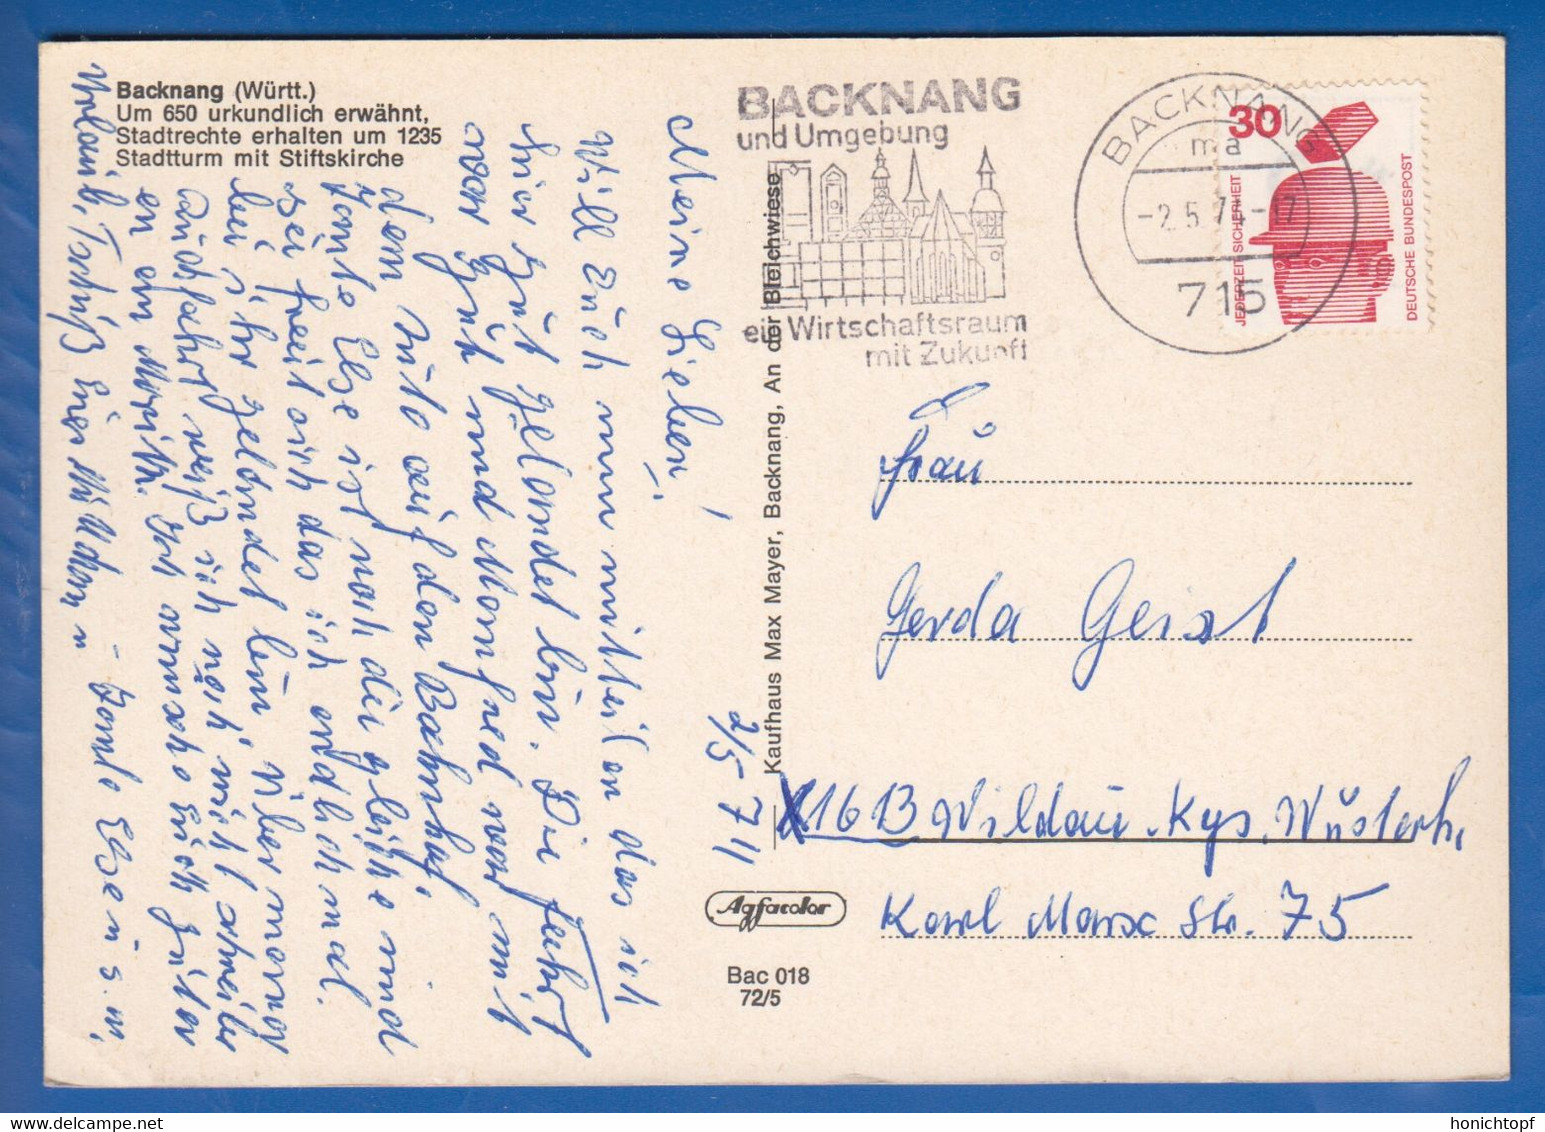 Backnang (Württ.)
Um 650 urkundlich erwähnt,
Stadtrechte erhalten um 1235
Stadtturm mit Stiftskirche
BACKNANG
und Umgebung
ein Wirtschaftsraum
mit Zukunft
BACKNANG
ma
-2.5.74-17
715
30
JEDERZEIT SICHERHEIT
DEUTSCHE BUNDESPOST
Kaufhaus Max Mayer, Backnang, An der Bleichwiese
2/5 74
Meine Lieben!
Will Euch nun mitteilen das ich
hier gut gelandet bin. Die Fahrt
war gut und Manfred war mit
dem Auto auf den Bahnhof.
Tante Else ist noch die gleiche und
sie freut sich das ich endlich mal
bei ihr gelandet bin. Über meine
weiß ich noch nicht
Else u. s. m.
Frau
Gerda Geist
1613 Wildau. Kgs. Wüsterh.
Karl Marx Str. 75
Agfacolor
Bac 018
72/5
honichtopf